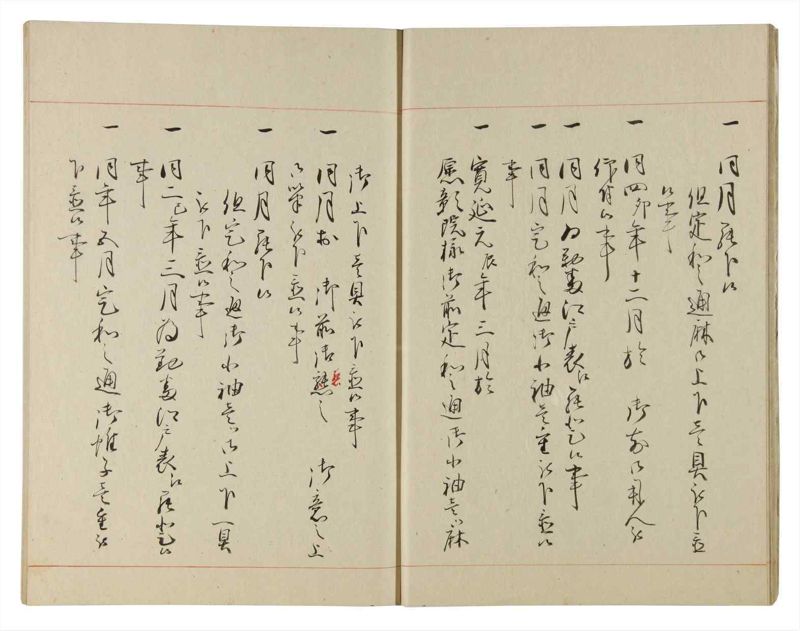 一 同月罷下候
但定之通麻御上下壱具被下置
候事
一 同四卯年十二月於 御前御用人被
仰付候事
一 同月為勤番江戸表江罷登候事
一 同月定之通御小袖壱重被下置候
事
一 寛延元辰年三月於
院様御前定之通御小袖壱ツ麻
御上下壱具被下置候事
一 同月於 御前御懇之 御意之上
御被下置候事
一 同月罷下候
但定之通御小袖壱ツ御上下一具
被下置候事
一 同二巳年三月為勤番江戸表江罷登候
事
一 同年五月定之通御帷子壱重被
下置候事